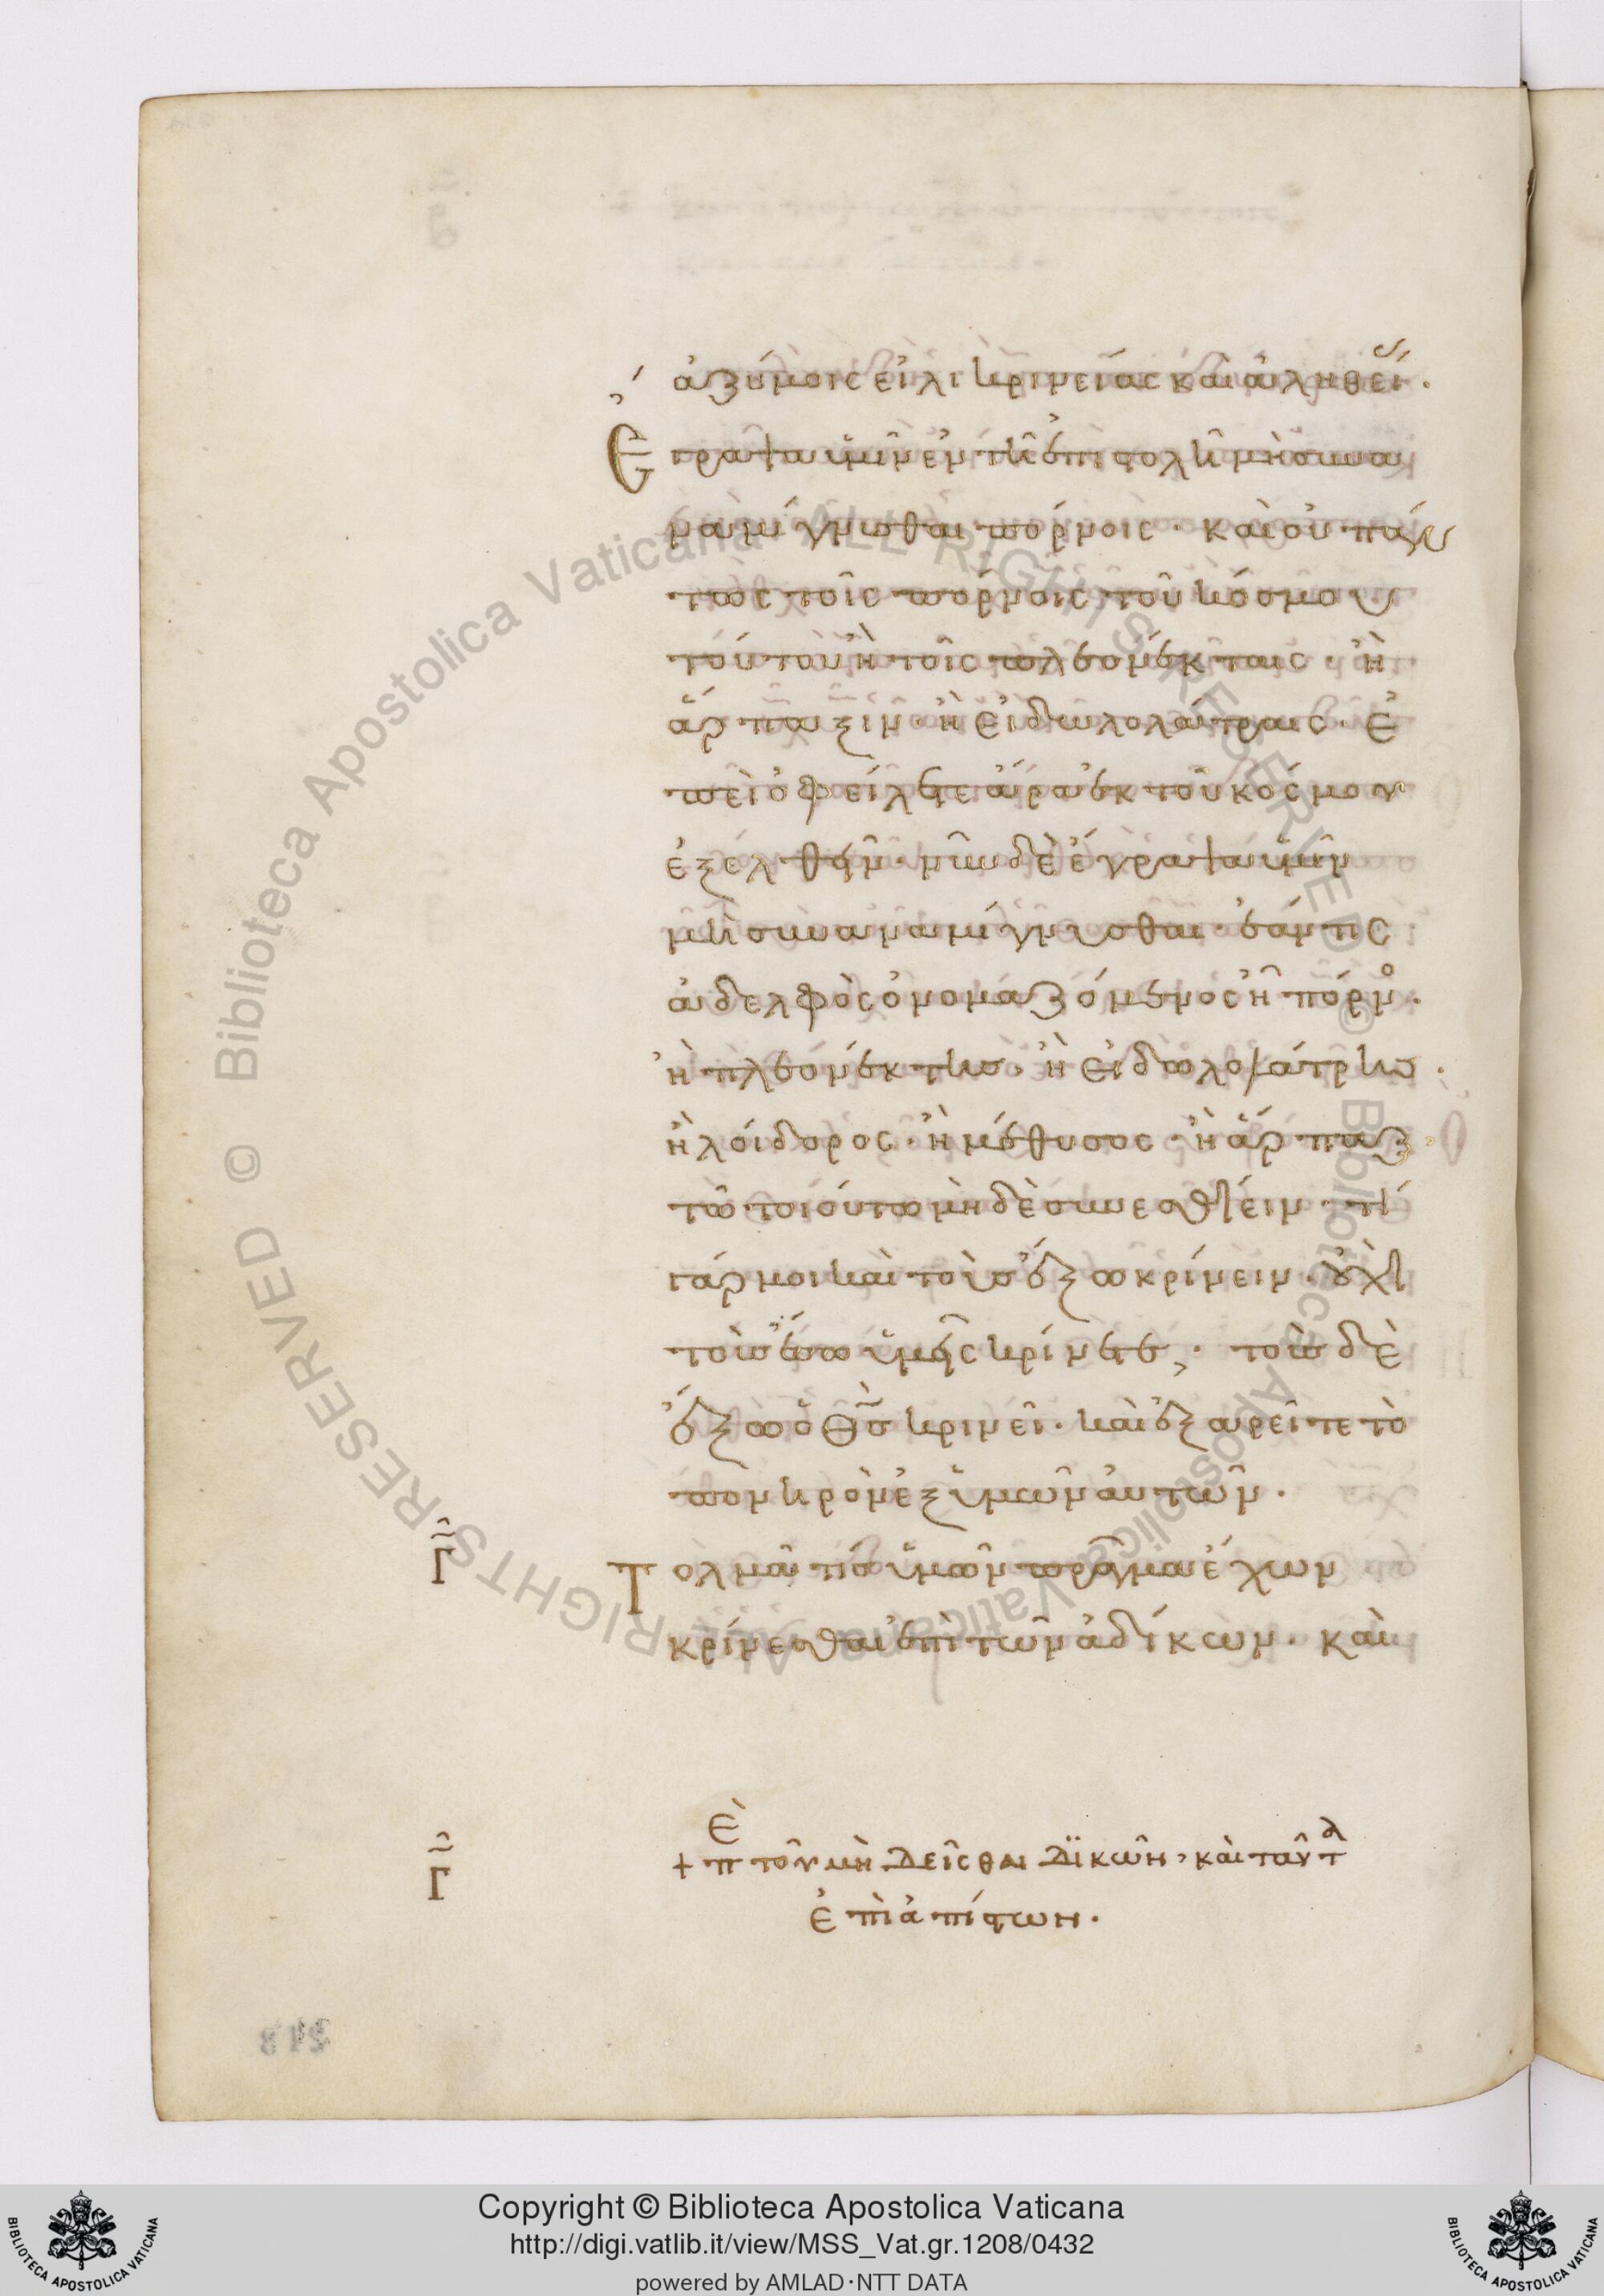 ἀζύμοις εἰλικρινείας καὶ ἀληθεί.
Ἔγραψα ὑμῖν ἐν τῆ ἐπιστολῆ μὴ συνα
ναμίγνυσθαι πόρνοις· καὶ οὐ πάν
τως τοῖς πόρνοις τοῦ κόσμου
τούτου ἢ τοῖς πλεονέκταις· ἢ
ἅρπαξιν· ἢ εἰδωλολάτραις· ἐ
πεὶ ὀφείλετε ἄρα ἐκ τοῦ κόσμου
ἐξελθεῖν· νῦν δὲ ἔγραψα ὑμῖν
μὴ συναναμίγνυσθαι· ἐάν τις
ἀδελφὸς ὀνομαζόμενος ἢ πόρνο.
ἢ πλεονέκτησ· ἢ εἰδωλολάτρησ.
ἢ λοίδορος· ἢ μέθυσος· ἢ ἅρπαξ·
τῶ τοιούτω μὴδὲ συνεσθίειν· τί
γάρ μοι καὶ τοὺσ ἔξω κρίνειν· οὐχὶ
τοὺσ ἔσω ὑμεῖς κρίνετε; τοὺσ δὲ
ἔξω ὁ θσ κρινεῖ· καὶ ἐξαρεῖτε τὸ
πονηρὸν ἐξ ὑμῶν αὐτῶν.
Γ Τολμᾶ τίσ ὑμῶν πρᾶγμα ἔχων
κρίνεσθαι ἐπὶ τῶν ἀδίκων· καὶ
Γ + πὲ τοῦ μὴ δεῖσθαι δϊκῶν· καὶ ταῦτα
ἐπὶ ἀπίστων.
248
Copyright © Biblioteca Apostolica Vaticana
http://digi.vatlib.it/view/MSS_Vat.gr.1208/0432
powered by AMLAD·NTT DATA
BIBLIOTECA APOSTOLICA VATICANA
BIBLIOTECA APOSTOLICA VATICANA
© Biblioteca Apostolica Vaticana ALL RIGHTS RESERVED © Biblioteca Apostolica Vaticana ALL RIGHTS RESERVED